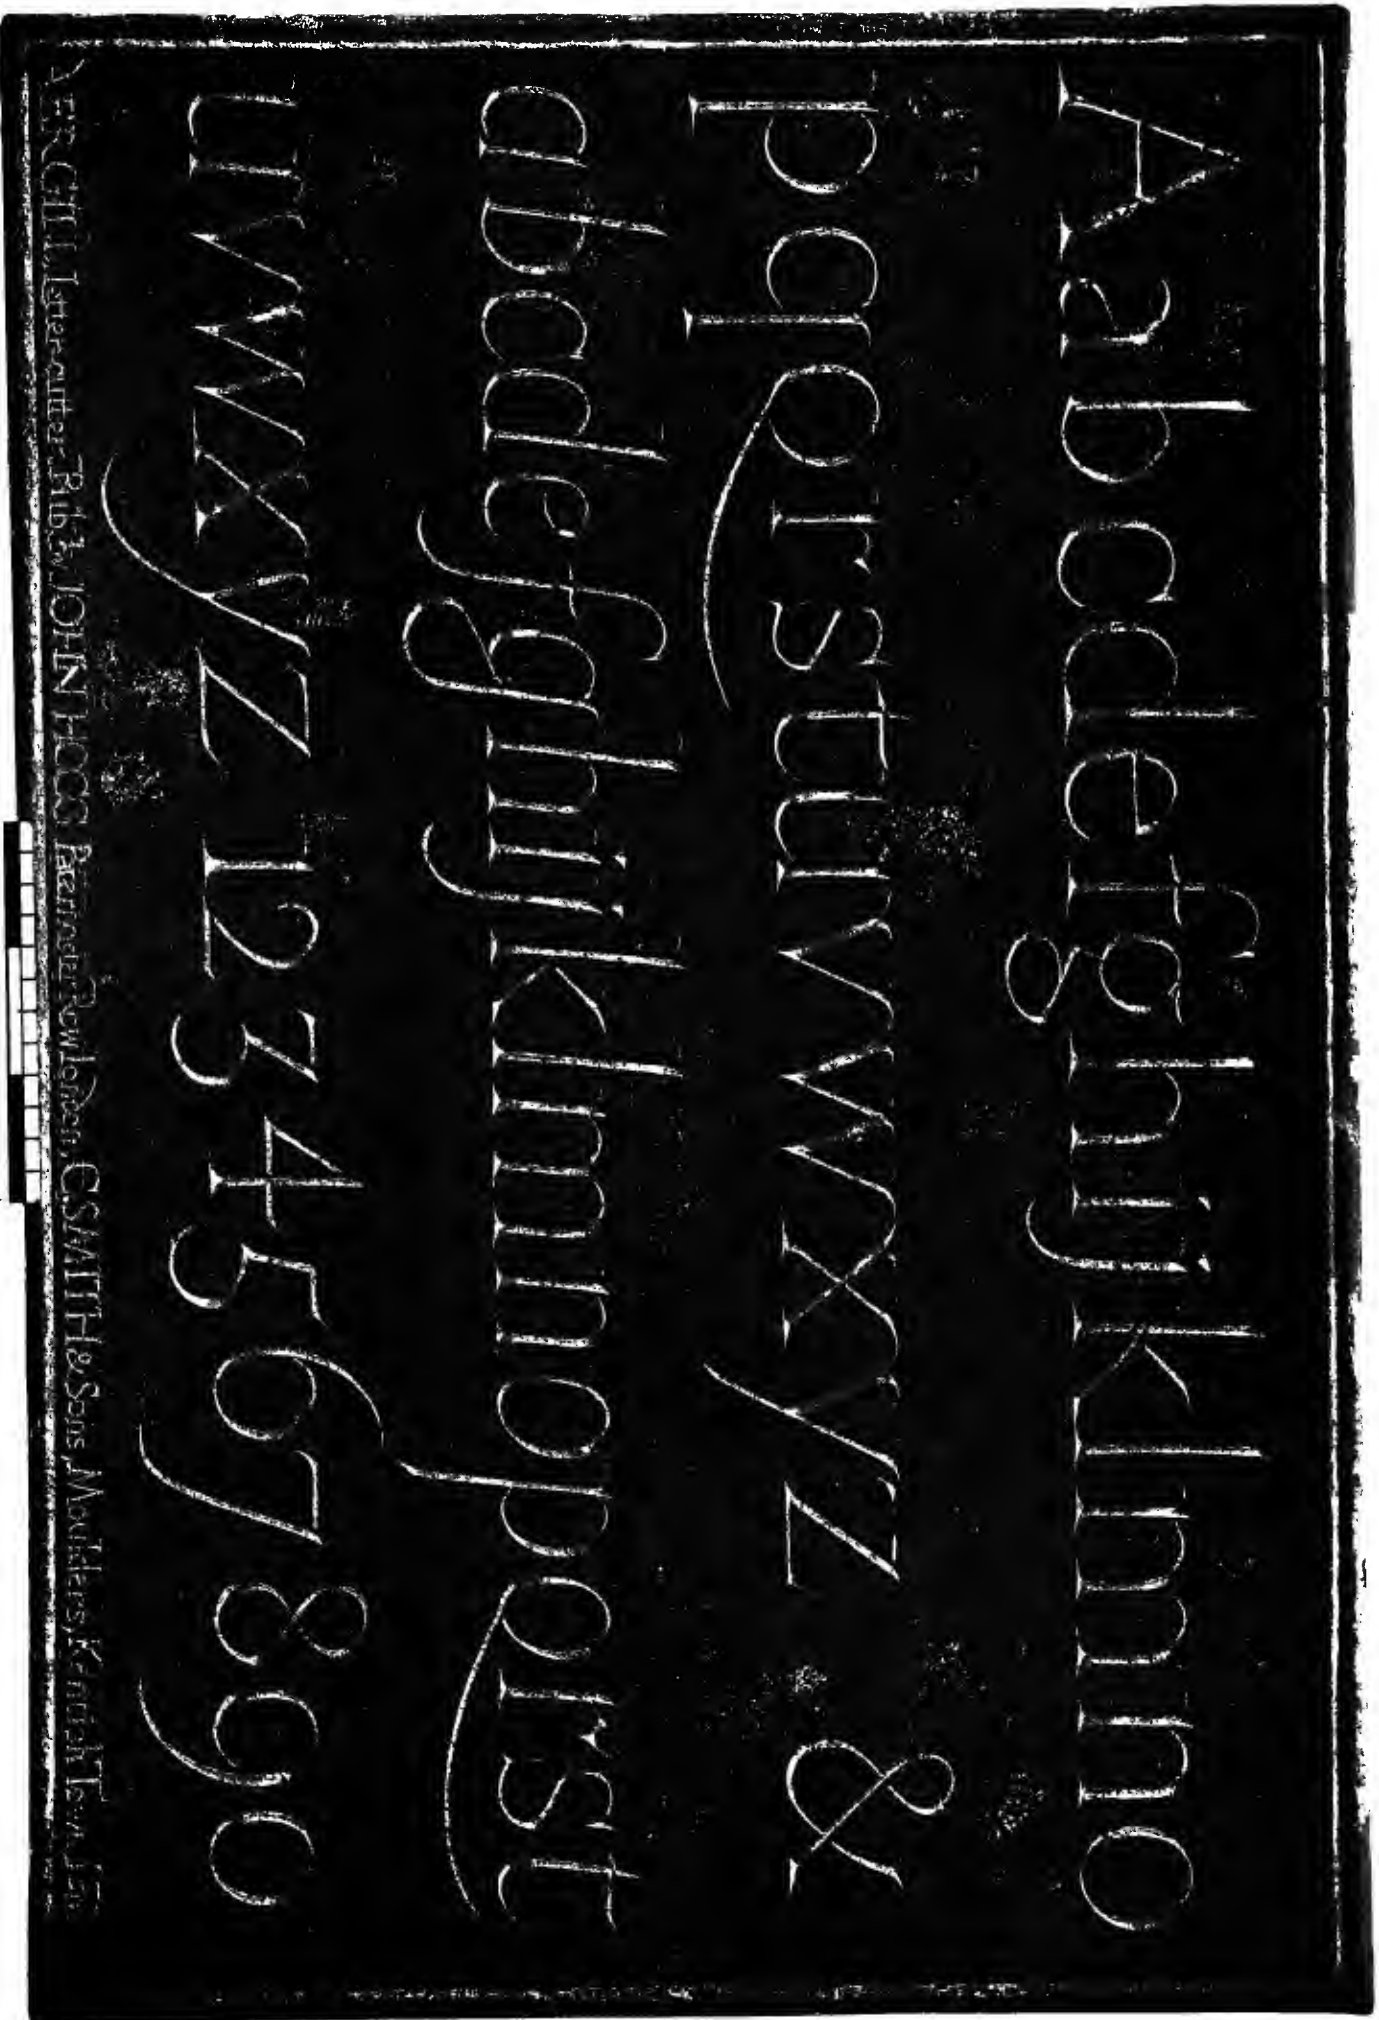 Aabcdefghijklmno
pqqrstuvwxyz &
abcdefghijklmnopqrst
uvwxyz 1234567890
A.E.R. GILL, Letter-cutter: Pub. by JOHN HOGG, Paternoster Row, London. C. SMITH & Sons, Moulders, Kentish Town,